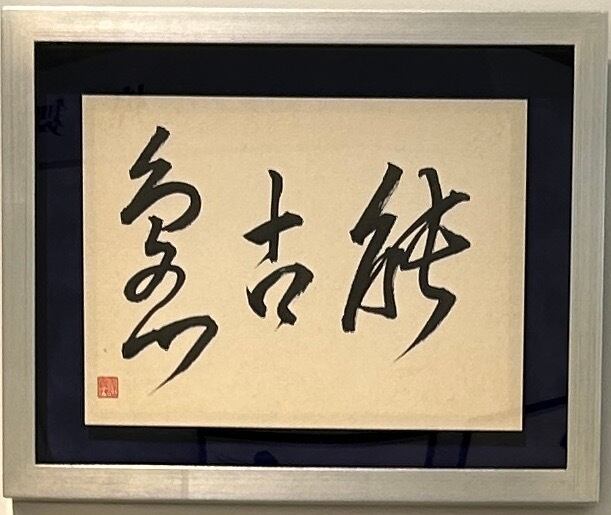 能古島